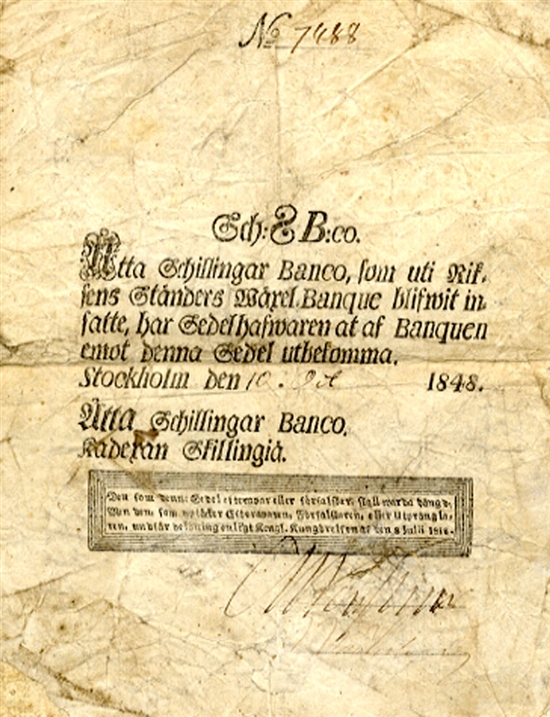 No 7488
Sch: 8 B:co.
Åtta Schillingar Banco, som uti Rik-
sens Ständers Wäxel-Banque blifwit in-
satte, har Sedelhafwaren at af Banquen
emot denna Sedel utbekomma.
Stockholm den 10. Oct 1848.
Åtta Schillingar Banco.
Kadexan Skillingiä.
Den som denna Sedel eftergör eller förfalskar, skall warda hängd;
Men den, som uptäcker Eftergöraren, Förfalskaren, eller Utpräng la-
ren, undfår belöning enligt Kongl. Kungörelsen af den 8 Julii